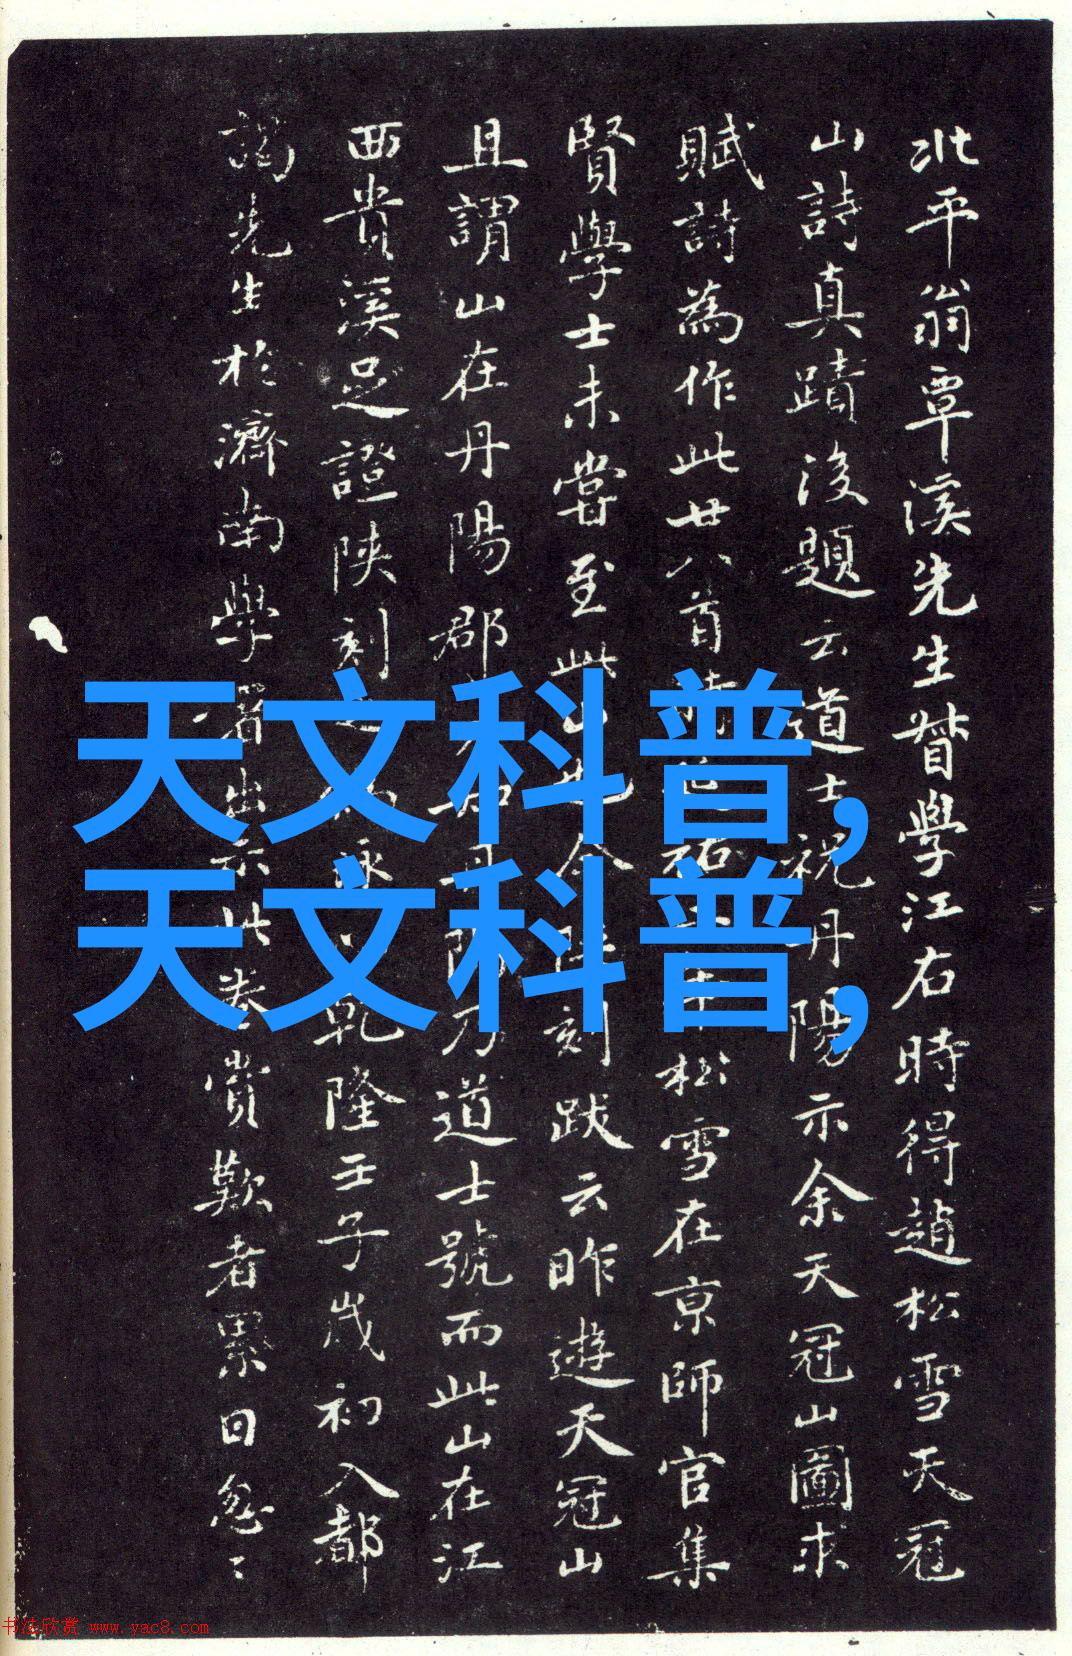 北平翁覃溪先生督學江右時得趙松雪天冠
山詩真蹟後題云道士祝丹陽示余天冠山圖求
賦詩為作此廿八首 祐 松雪在京師官集
賢學士未嘗至此山也今陝刻跋云昨遊天冠山
且謂山在丹陽郡 丹陽乃道士號而此山在江
西貴溪足證陝刻 乾隆壬子歲初入都
謁先生於濟南學署出示此卷賞歎者累日怱〻
天文科普,
天文科普,
书法欣赏 www.yac8.com